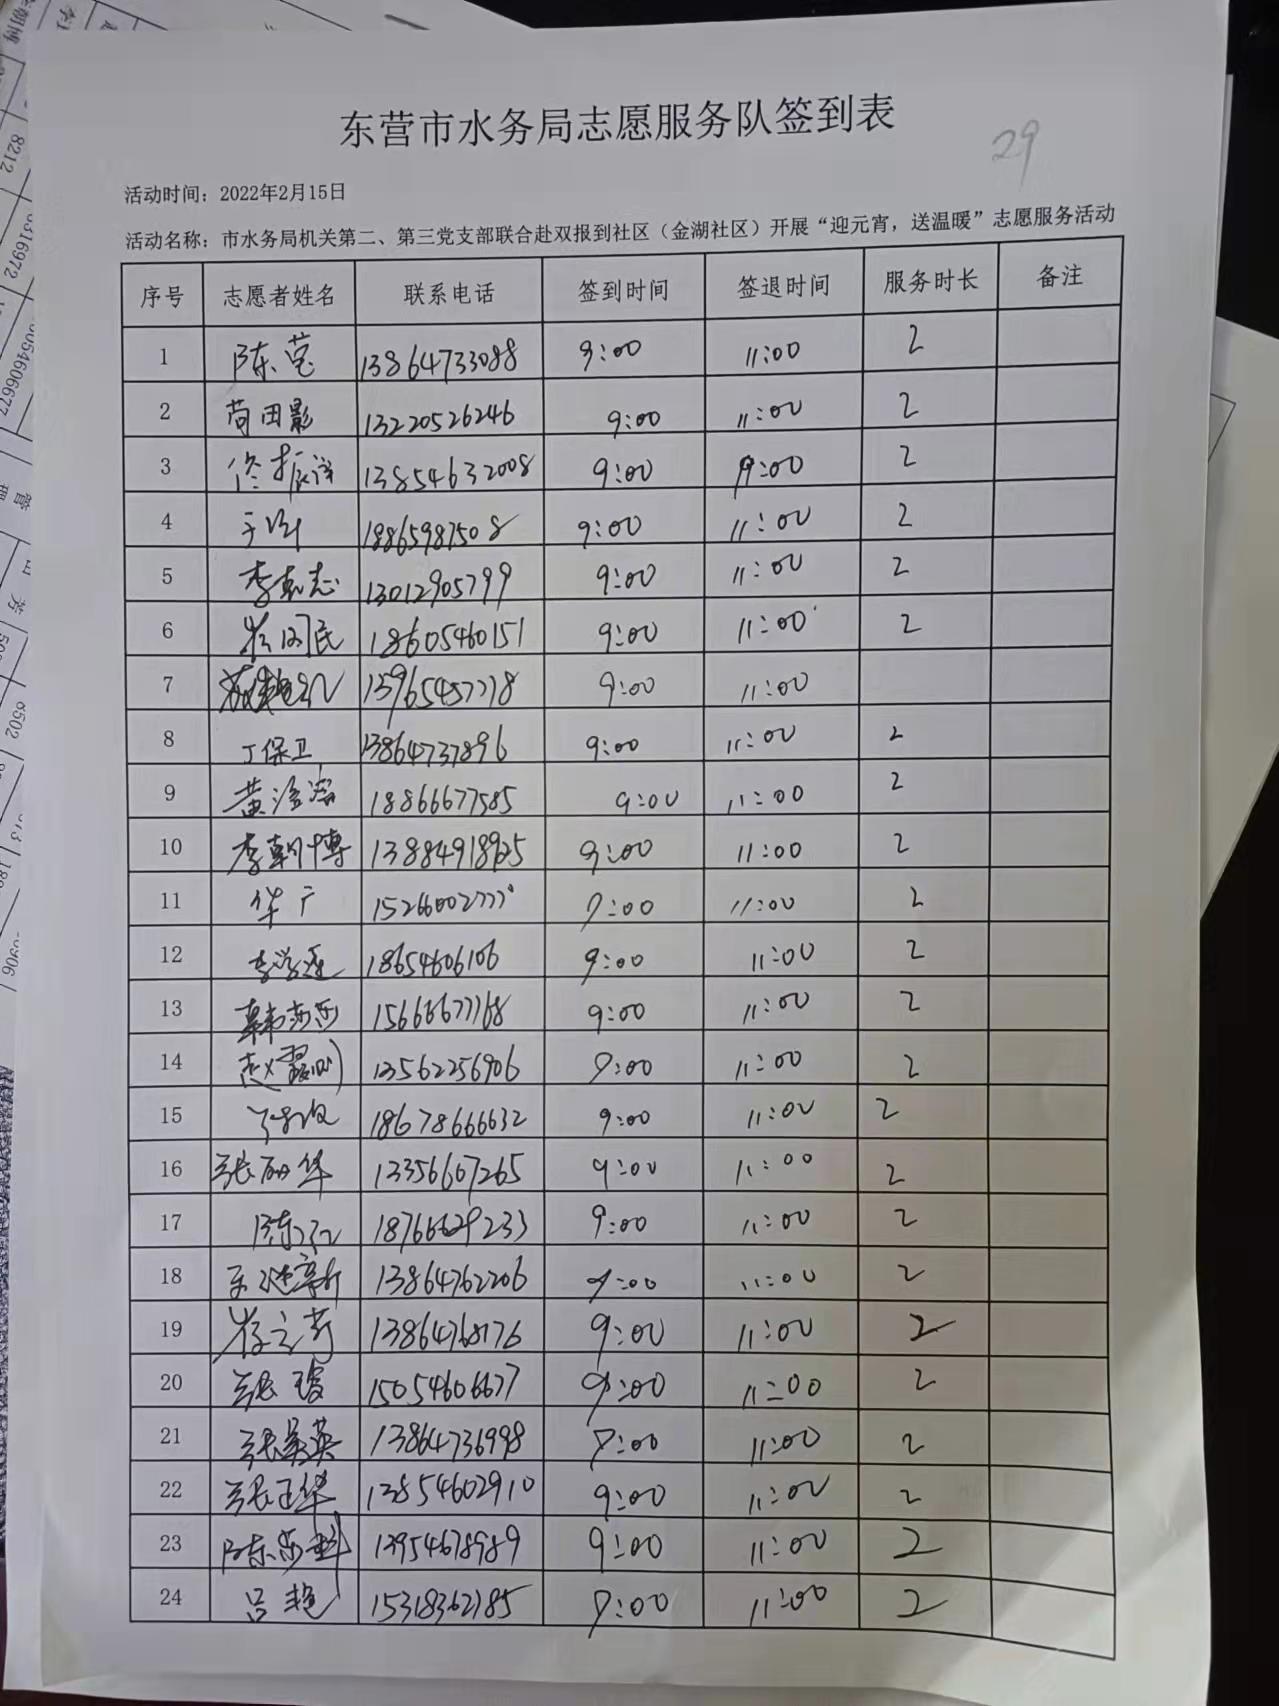 东营市水务局志愿服务队签到表
29
活动时间：2022年2月15日
活动名称：市水务局机关第二、第三党支部联合赴双报到社区（金湖社区）开展“迎元宵，送温暖”志愿服务活动
序号 志愿者姓名 联系电话 签到时间 签退时间 服务时长 备注
1 陈莹 13864733088 9:00 11:00 2
2 苘田影 13220526246 9:00 11:00 2
3 佟振 13854632008 9:00 9:00 2
4 于 18865987508 9:00 11:00 2
5 李志 13012905799 9:00 11:00 2
6 崔国民 18605460151 9:00 11:00 2
7 13965457778 9:00 11:00
8 丁保卫 13864737896 9:00 11:00 2
9 黄 18866677585 9:00 11:00 2
10 李朝博 13884918925 9:00 11:00 2
11 华广 15266002777 9:00 11:00 2
12 李学莲 18654606106 9:00 11:00 2
13 韩莎莎 15666677768 9:00 11:00 2
14 赵 13562256906 9:00 11:00 2
15 18678666632 9:00 11:00 2
16 张丽华 13356607265 9:00 11:00 2
17 陈红 18766629233 9:00 11:00 2
18 王建新 13864762206 9:00 11:00 2
19 崔立芳 13864768176 9:00 11:00 2
20 张璿 15054606677 9:00 11:00 2
21 张美英 13864736998 9:00 11:00 2
22 张玉华 13854602910 9:00 11:00 2
23 陈莎 13954678989 9:00 11:00 2
24 吕艳 15318362185 9:00 11:00 2